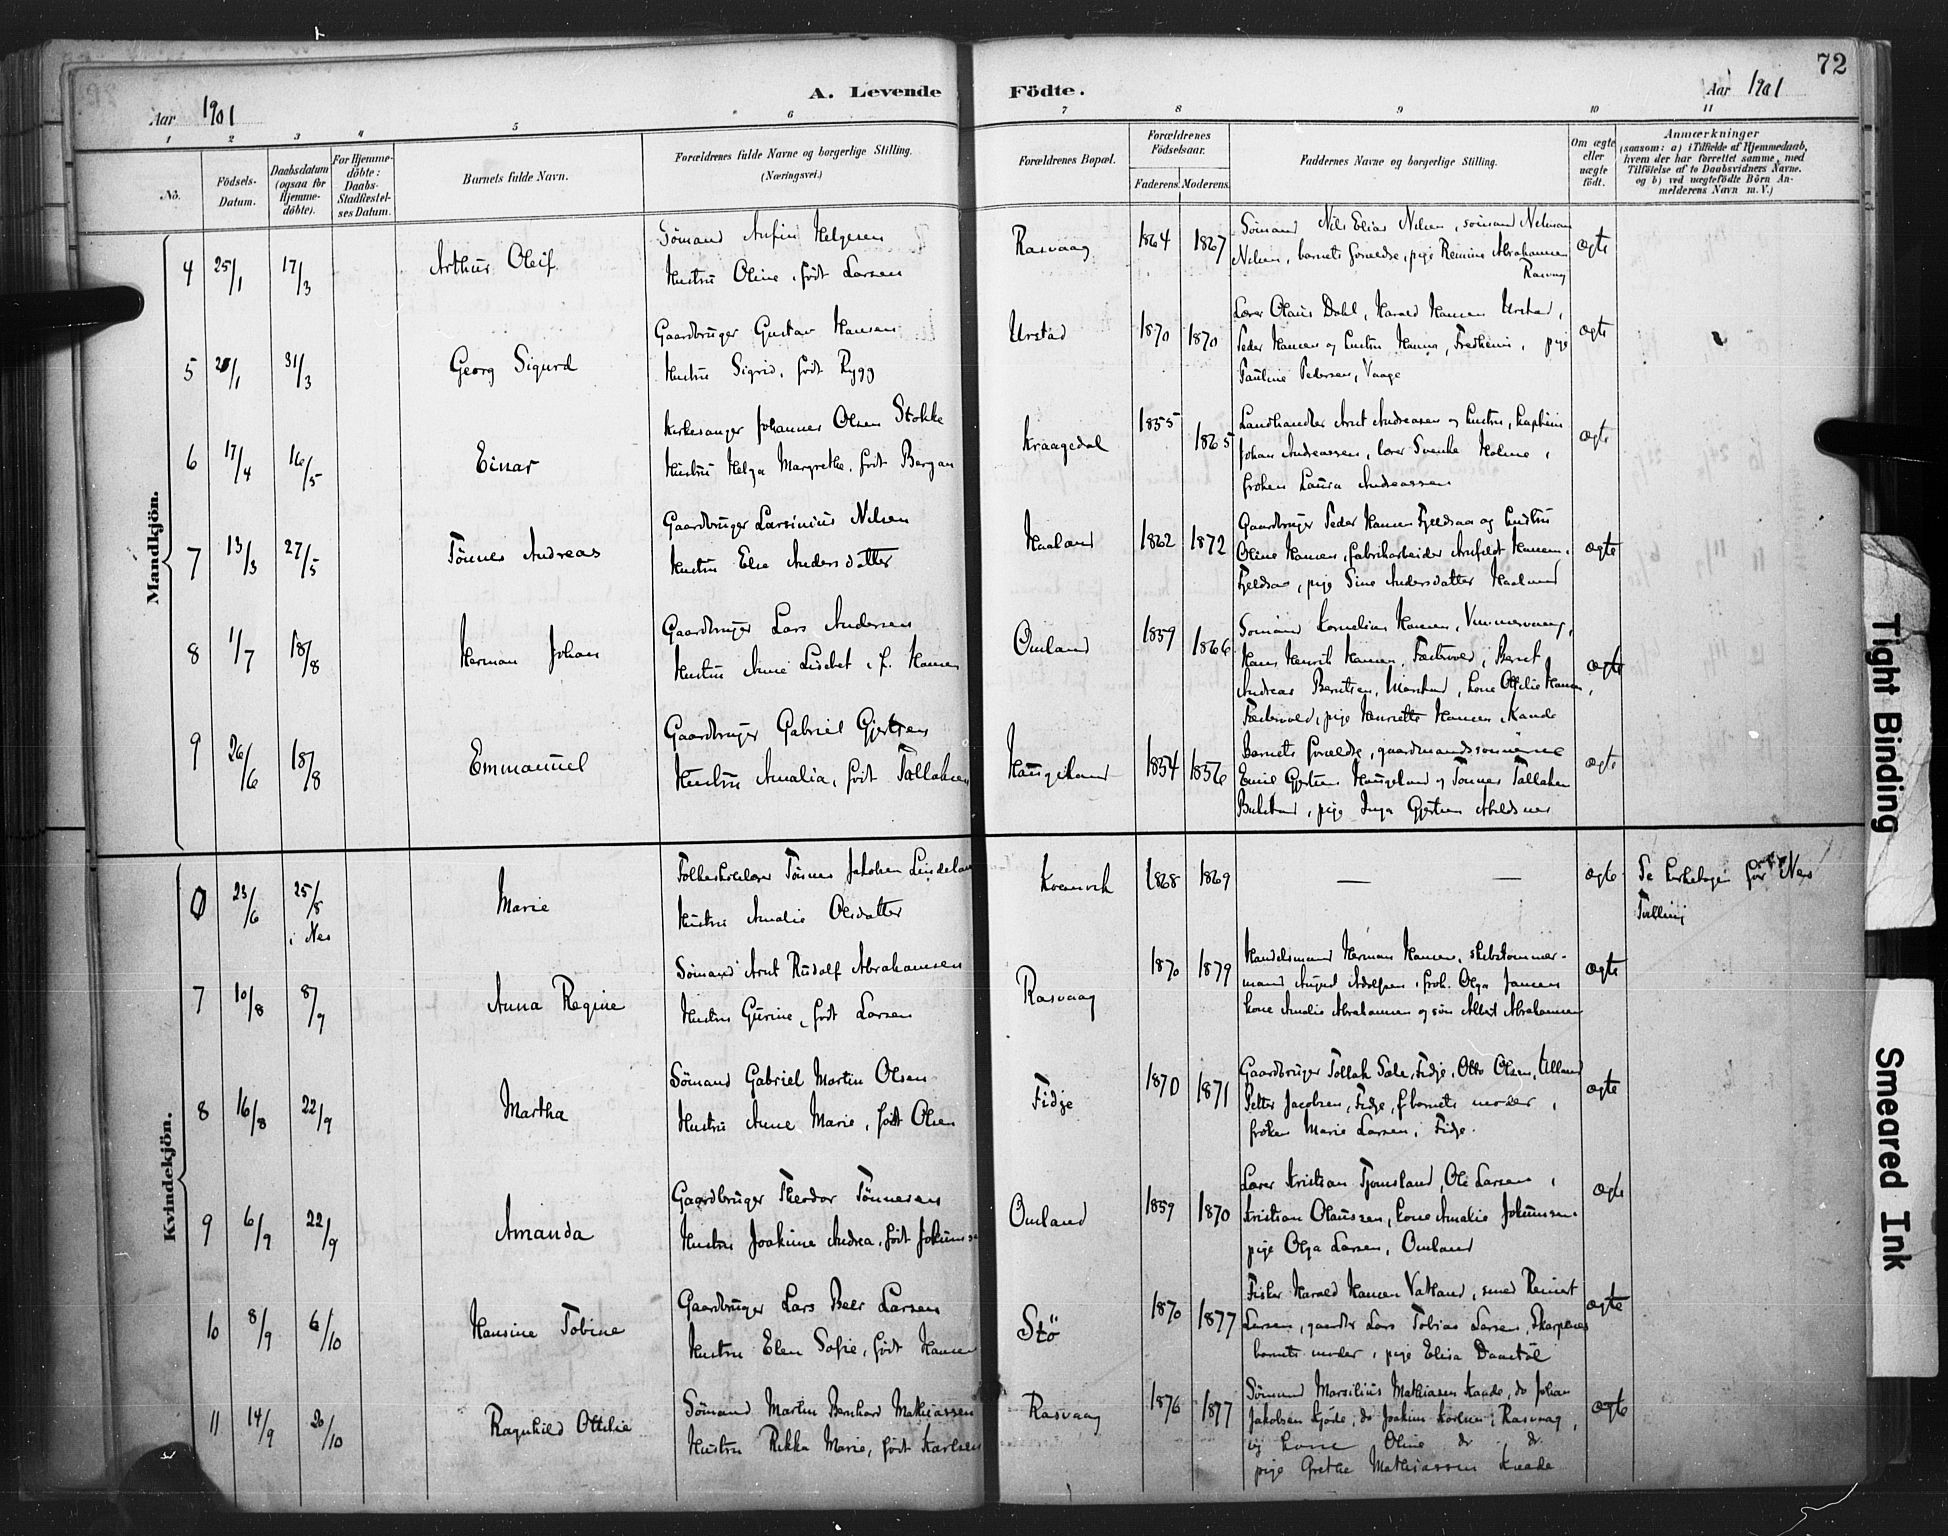 72
Aar 1901
A. Levende Födte.
Aar 1901
1 2 3 4 5 6 7 8 9 10 11
No.
Födsels-Datum.
Daabsdatum (ogsaa for Hjemme-döbte).
For Hjemme-döbte: Daabs-Stadfæstel-ses Datum.
Barnets fulde Navn.
Forældrenes fulde Navne og borgerlige Stilling.
(Næringsvei.)
Forældrenes Bopæl.
Forældrenes Födselsaar.
Faderens. Moderens.
Faddernes Navne og borgerlige Stilling.
Om ægte eller uægte födt.
Anmærkninger
(saasom: a) i Tilfælde af Hjemmedaab, hvem der har forrettet samme, med Tilföielse af to Daabsvidners Navne. og b) ved uægtefödte Börn An-melderens Navn m. V.)
Mandkjön.
4 25/1 17/3 Arthur Oleif
Sömand Anfin Helgesen
Hustru Oline, födt Larsen
Rasvaag 1864 1867
Sömand Nils Elias Nilsen, sömand
Nilsen, barnets forældre, pige Abrahamsen
Rasvaag
ægte
5 1 31/3 Georg Sigurd
Gaardbruger Gustav Hansen
Hustru Sigrid, födt Rygg
Urstad 1870 1870
Lærer Olaus Dahl, Harald Hansen Urstad,
Peder Hansen og hustru Hanna, pige
Pauline Pedersen, Vaage
ægte
6 17/4 16/5 Einar
Kirkesanger Johannes Olsen Stokke
Hustru Helga Margrethe, födt Bergan
Kraagedal 1855 1865
Landhandler Arnt Andreasen og hustru, kaptein
Johan Andreassen, lærer Svenke Holme,
fröken Laura Andreassen
ægte
7 13/3 27/5 Tönnes Andreas
Gaardbruger Larsinius Nilsen
Hustru Else Andersdatter
Haaland 1862 1872
Gaardbruger Peder Hansen Fjeldsaa og hustru
Oline Hansen, fabrikarbeider Hansen
Fjeldsaa, pige Sine Andersdatter Haaland
ægte
8 1/7 18/8 Herman Johan
Gaardbruger Lars Andersen
Hustru Anne Lisebet, f. Hansen
Omland 1859 1866
Sömand Kornelius Hansen,
Hans Henrik Hansen, Bernt
Andreas Berntsen, kone Ottilie Hansen,
pige Henriette Hansen Kaade
ægte
9 26/6 18/8 Emmanuel
Gaardbruger Gabriel Gjertsen
Hustru Amalia, födt Tallaksen
Haugeland 1854 1856
Barnets forældre, gaardmandssönnerne
Emil Gjertsen Haugeland og Tönnes Tallaksen
pige Inga Gjertsen
ægte
Kvindekjön.
0 23/6 25/8 i Nes Marie
Tönnes Jakobsen
Hustru Amalie Olsdatter
Kvænvik 1868 1869
— —
ægte
Se kirkebogen for Nes
7 10/8 8/9 Anna Regine
Sömand Arnt Rudolf Abrahamsen
Hustru Gurine, födt Larsen
Rasvaag 1870 1879
Handelsmand Herman Hansen, skibstömmer-
mand August Adolfsen, frök. Olga Jansen
kone Amalie Abrahamsen og sön Albert Abrahamsen
ægte
8 16/8 22/9 Martha
Sömand Gabriel Martin Olsen
Hustru Anne Marie, födt Olsen
Fidje 1870 1871
Gaardbruger Tollak Sale, Fidje, Otto Olsen, Ulland
Petter Jacobsen, Fidje, barnets moder,
fröken Marie Larsen, Fidje.
ægte
9 6/9 22/9 Amanda
Gaardbruger Theodor Tönnesen
Hustru Joakime Andrea, födt
Omland 1859 1870
Lærer Kristian Tjomsland, Ole Larsen,
Kristian Olaussen, kone Amalie
pige Olga Larsen, Omland
ægte
10 8/9 6/10 Hansine Tobine
Gaardbruger Lars Beer Larsen
Hustru Elen Sofie, födt Hansen
Stö 1870 1877
Fisker Harald Hansen Vatland, smed Reinert
Larsen, gaardbr Lars Tobias Larsen, Skarpenes
barnets moder, pige Elisa
ægte
11 14/9 20/10 Ragnhild Ottilie
Sömand Martin Bernhard Mathiassen
Hustru Rikka Marie, födt Karlsen
Rasvaag 1876 1877
Sömand Marsilius Mathiasen Kaade, do Johan
Jakobsen do Joakim Karlsen, Rasvaag,
og kone Oline do do
pige Grethe Mathiassen Kaade
ægte
Tight Binding
Smeared Ink